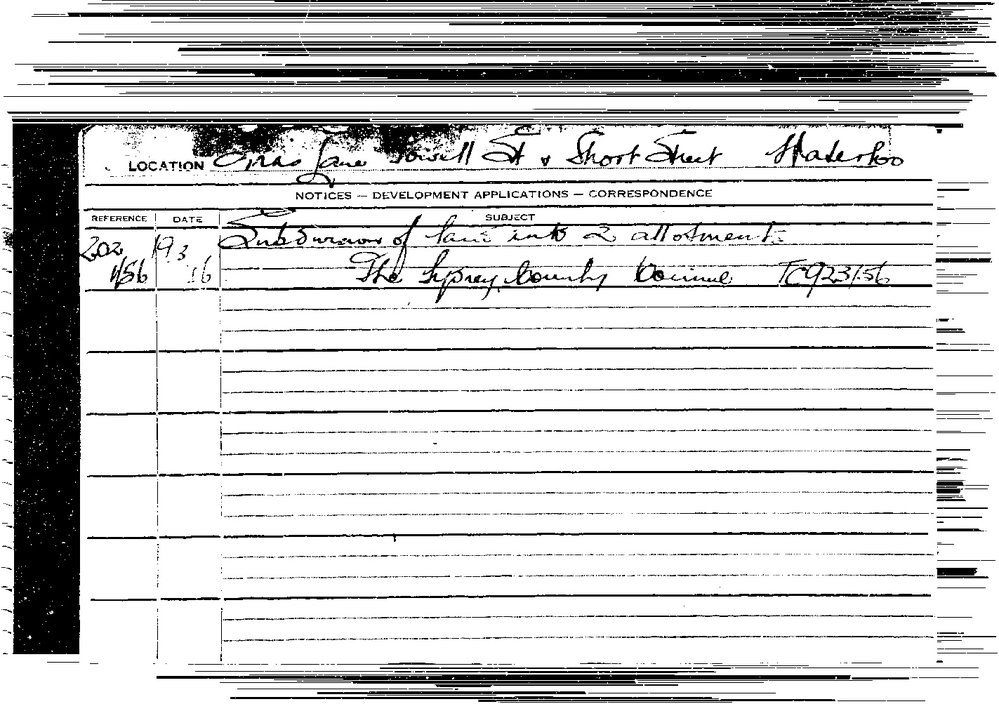 LOCATION Lane Powell St & Short Street Waterloo
NOTICES — DEVELOPMENT APPLICATIONS — CORRESPONDENCE
REFERENCE DATE SUBJECT
202 19.3 Subdivision of land into 2 allotments.
1/56 56 The Sydney County Council TC923/56